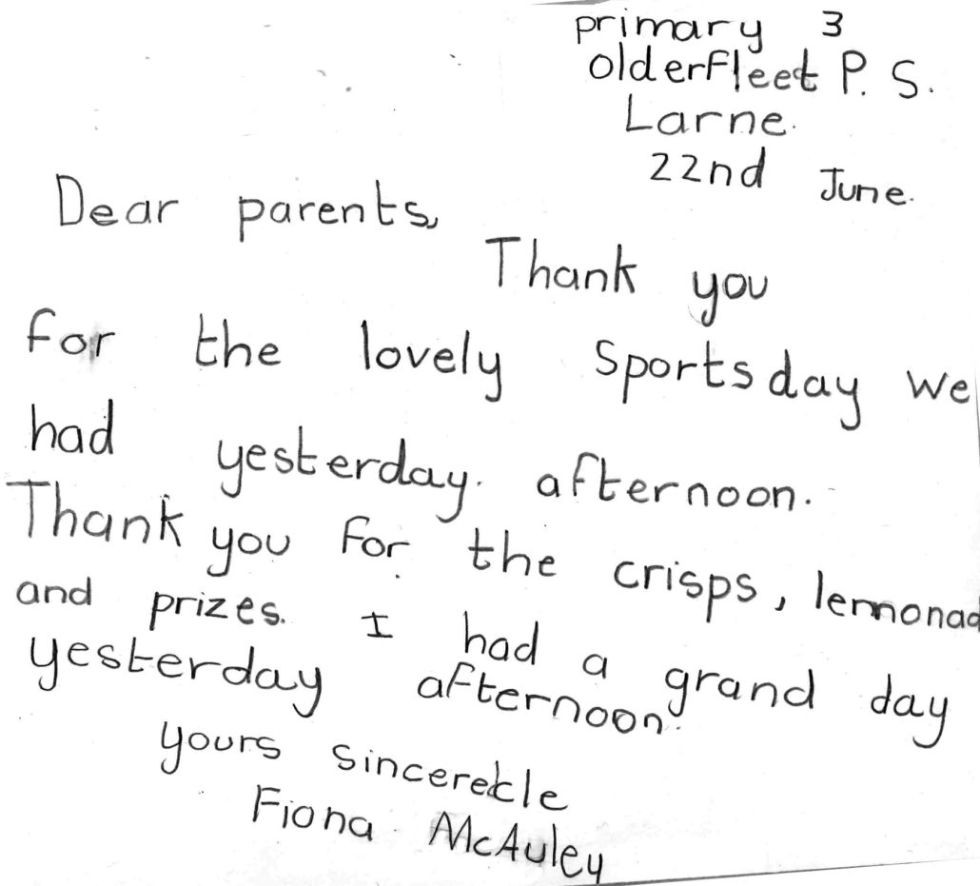 primary 3
Olderfleet P. S.
Larne.
22nd June.
Dear parents,
Thank you
for the lovely Sportsday we
had yesterday. afternoon.
Thank you for the crisps, lemonad
and prizes. I had a grand day
yesterday afternoon.
yours sincerekle
Fiona McAuley